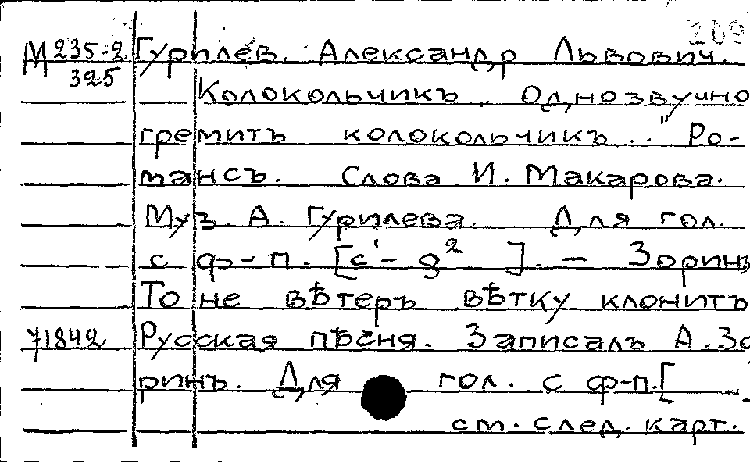 209
М 235-2 Гурилев. Александр Львович.
325
Колокольчикъ. Однозвучно
гремитъ колокольчикъ.." Ро-
мансъ. Слова И. Макарова.
Муз. А. Гурилева. Для гол.
с ф-п. [c'- g² ]. — Зоринъ
То не вѣтеръ вѣтку клонитъ
71842 Русская пѣсня. Записалъ А. Зо
ринъ. Для гол. с ф-п.[
см. след. карт.